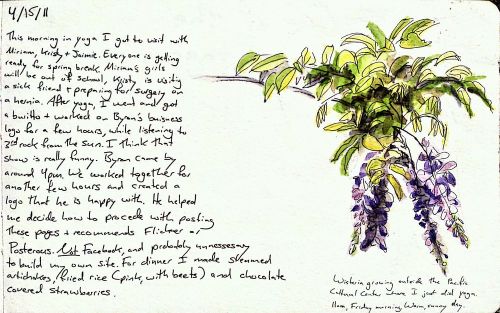 4/15/11
This morning in yoga I got to visit with
Miriam, Kristy + Jaimie. Everyone is getting
ready for spring break. Miriam's girls
will be out of school, Kristy is visiting
a sick friend + preparing for surgery on
a hernia. After yoga, I went and got
a burrito + worked on Byron's buisness
logo for a few hours, while listening to
3rd rock from the sun. I think that
show is really funny. Byron came by
around 4pm. We worked together for
another few hours and created a
logo that he is happy with. He helped
me decide how to procede with posting
these pages + recommends Flicker or
Posterous. Not Facebook, and probably unnessesary
to build my own site. For dinner I made steamed
artichokes, fried rice (pink, with beets) and chocolate
covered strawberries.
Wisteria growing outside the Pacific
Cultural Center where I just did yoga.
11am, Friday morning. Warm, sunny day.